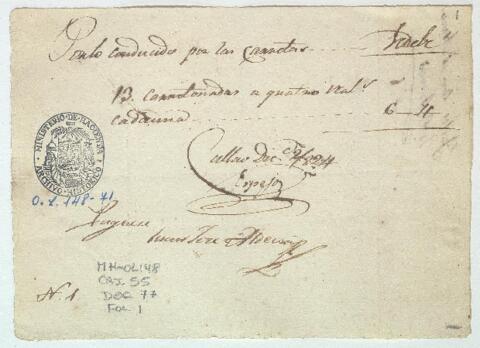 Por lo conducido por las Carretas Debe
13. Carretonadas a quatro real.s
cada una 6 4
Callao Dic.e 1824
Espejo
Paguese
Juan José
N. 1
MINISTERIO DE HACIENDA
ARCHIVO HISTORICO
O.L. 148-71
MH-OL148
CAJ. 55
DOC. 77
FOL. 1